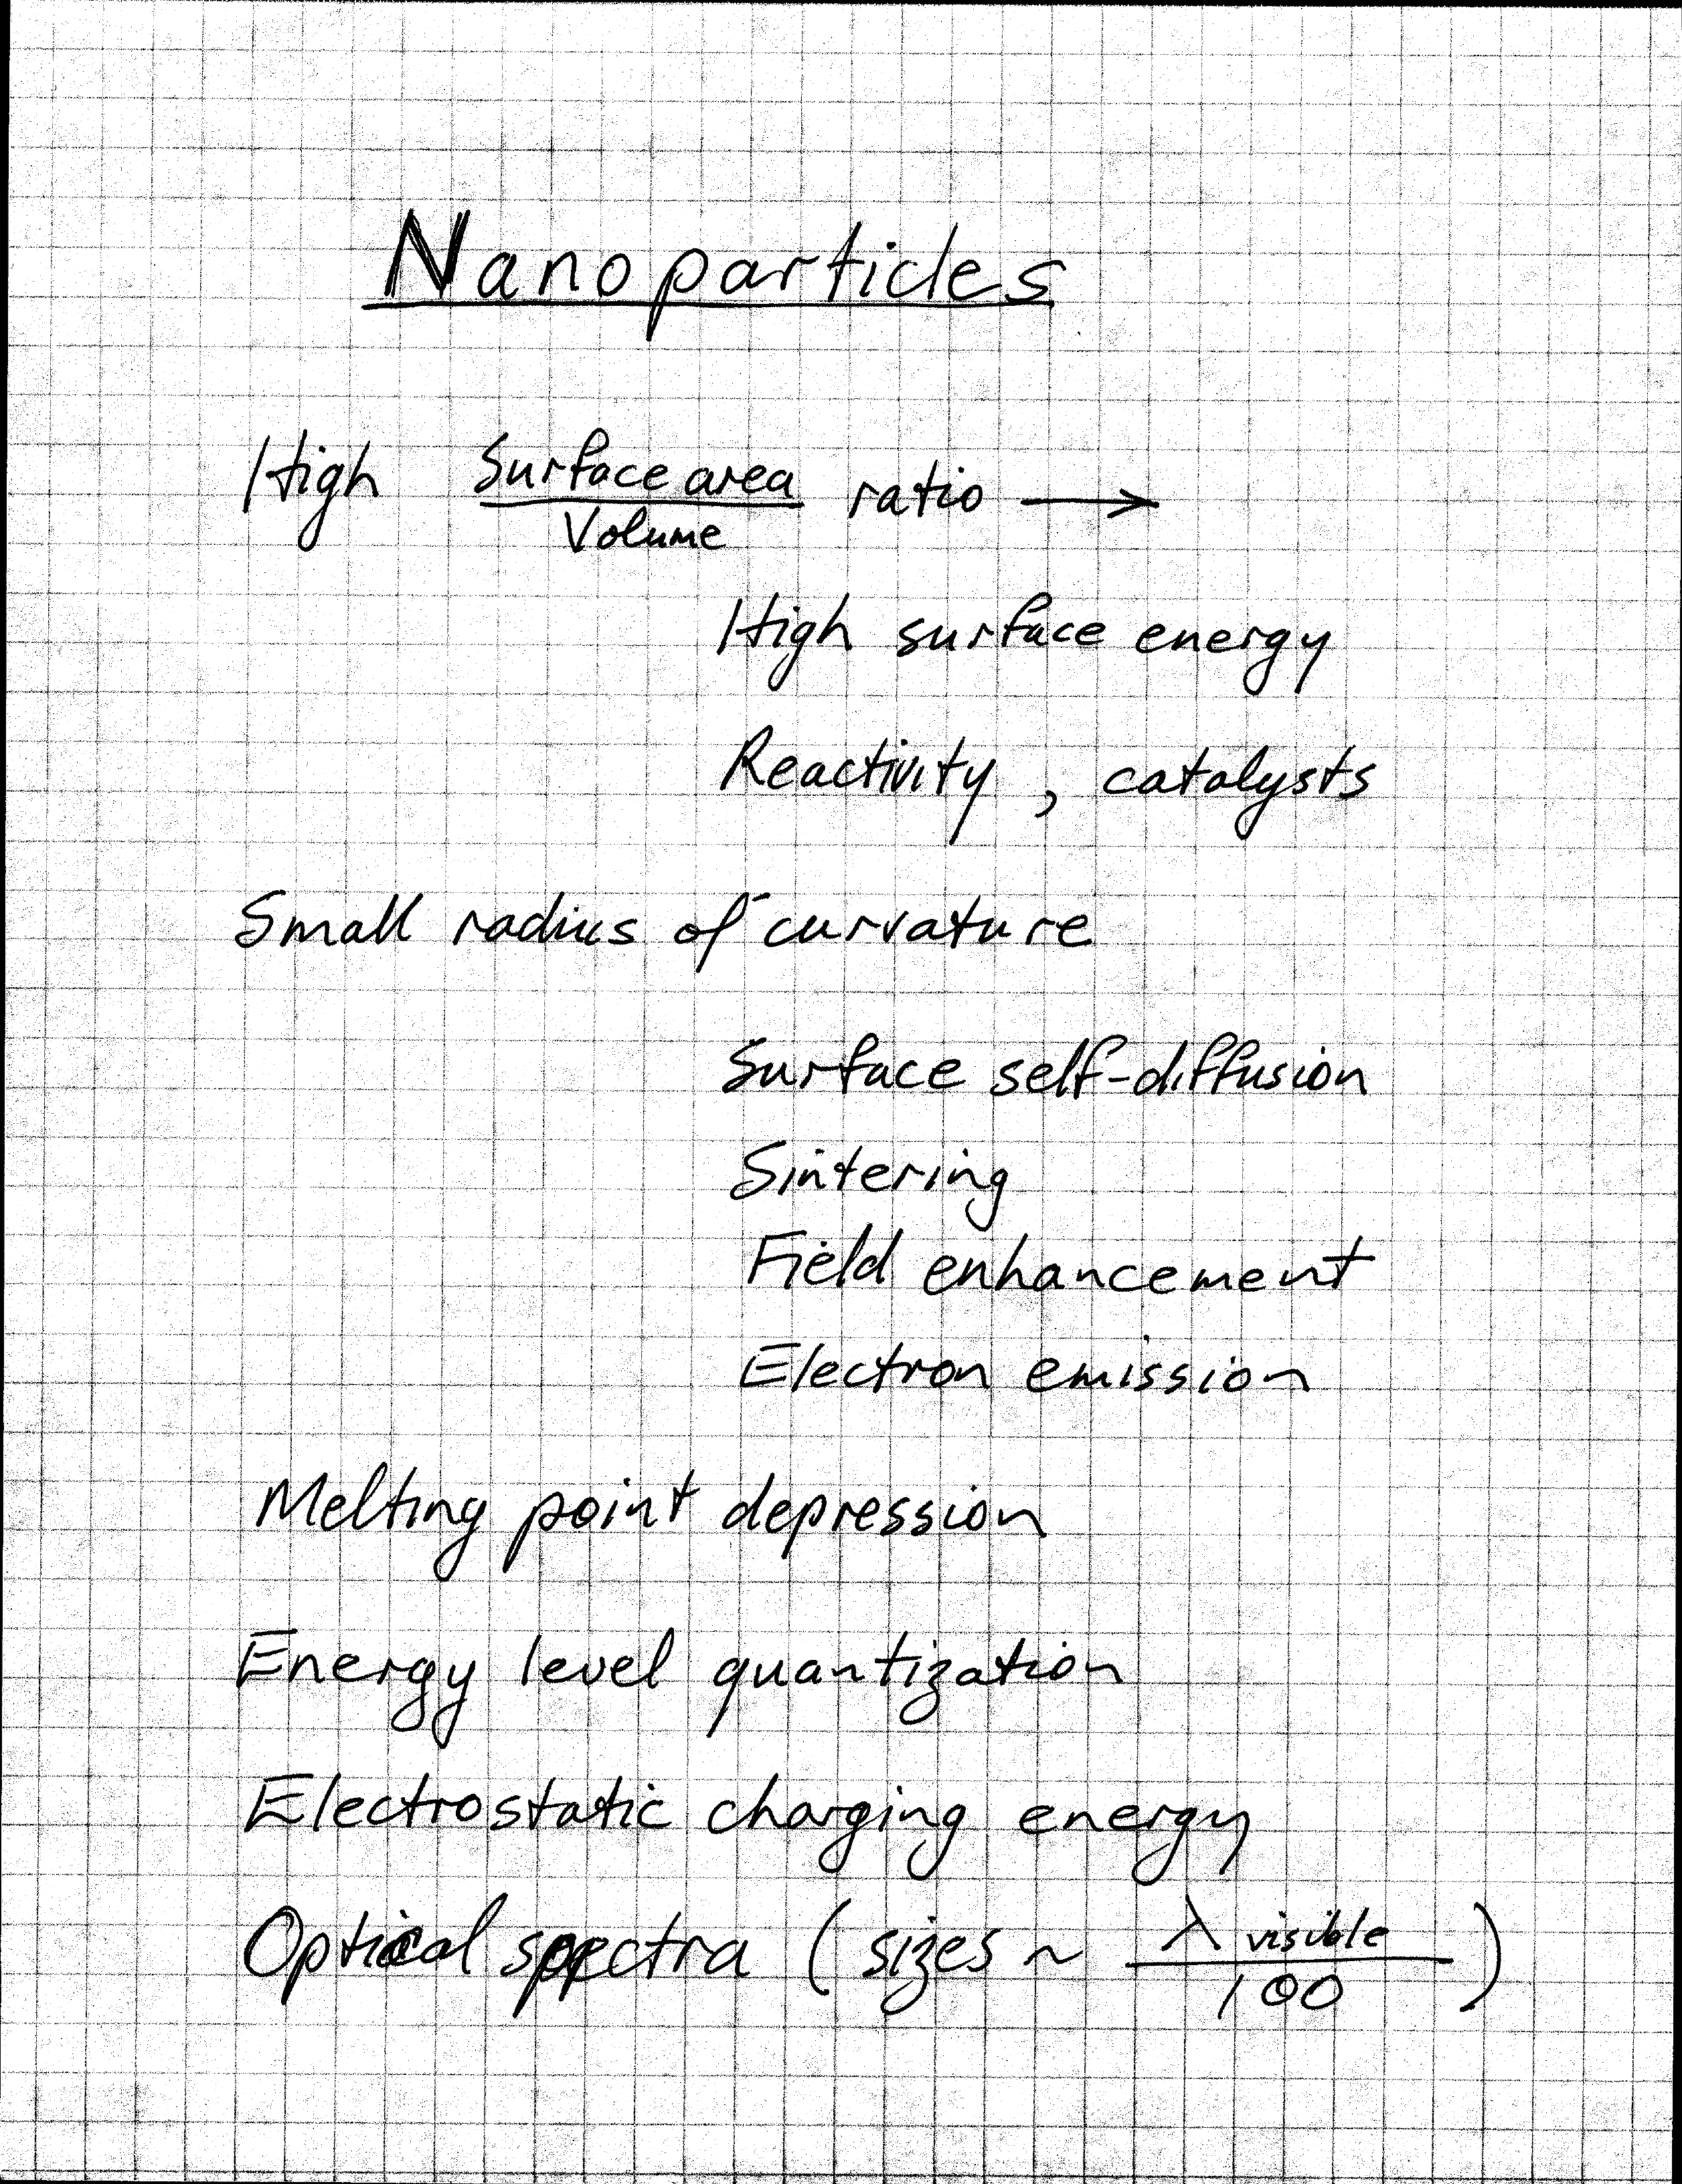 Nanoparticles
High Surface area / Volume ratio →
High surface energy
Reactivity, catalysts
Small radius of curvature
Surface self-diffusion
Sintering
Field enhancement
Electron emission
Melting point depression
Energy level quantization
Electrostatic charging energy
Optical spectra (sizes ~ λ visible / 100)